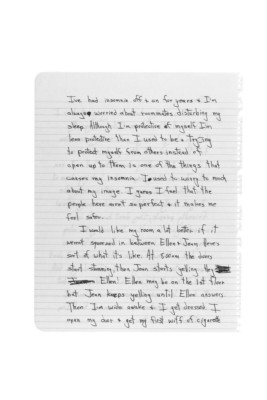 I've had insomnia off & on for years & I'm
always worried about roommates disturbing my
sleep. Although I'm protective of myself I'm
less protective than I used to be & Trying
to protect myself from others instead of
open up to them is one of the things that
causes my insomnia. I used to worry to much
about my image. I guess I feel that the
people here arent so perfect & it makes me
feel safer.
I would like my room a lot better if it
werent squeezed in between Ellen & Jean. Heres
sort of what it's like. At 5:00am the doors
start slamming, then Jean starts yelling. Hey
Ellen! Ellen may be on the 1st floor
but Jean keeps yelling until Ellen answers.
Then I'm wide awake & I get dressed. I
open my door & get my first wiff of cigarette